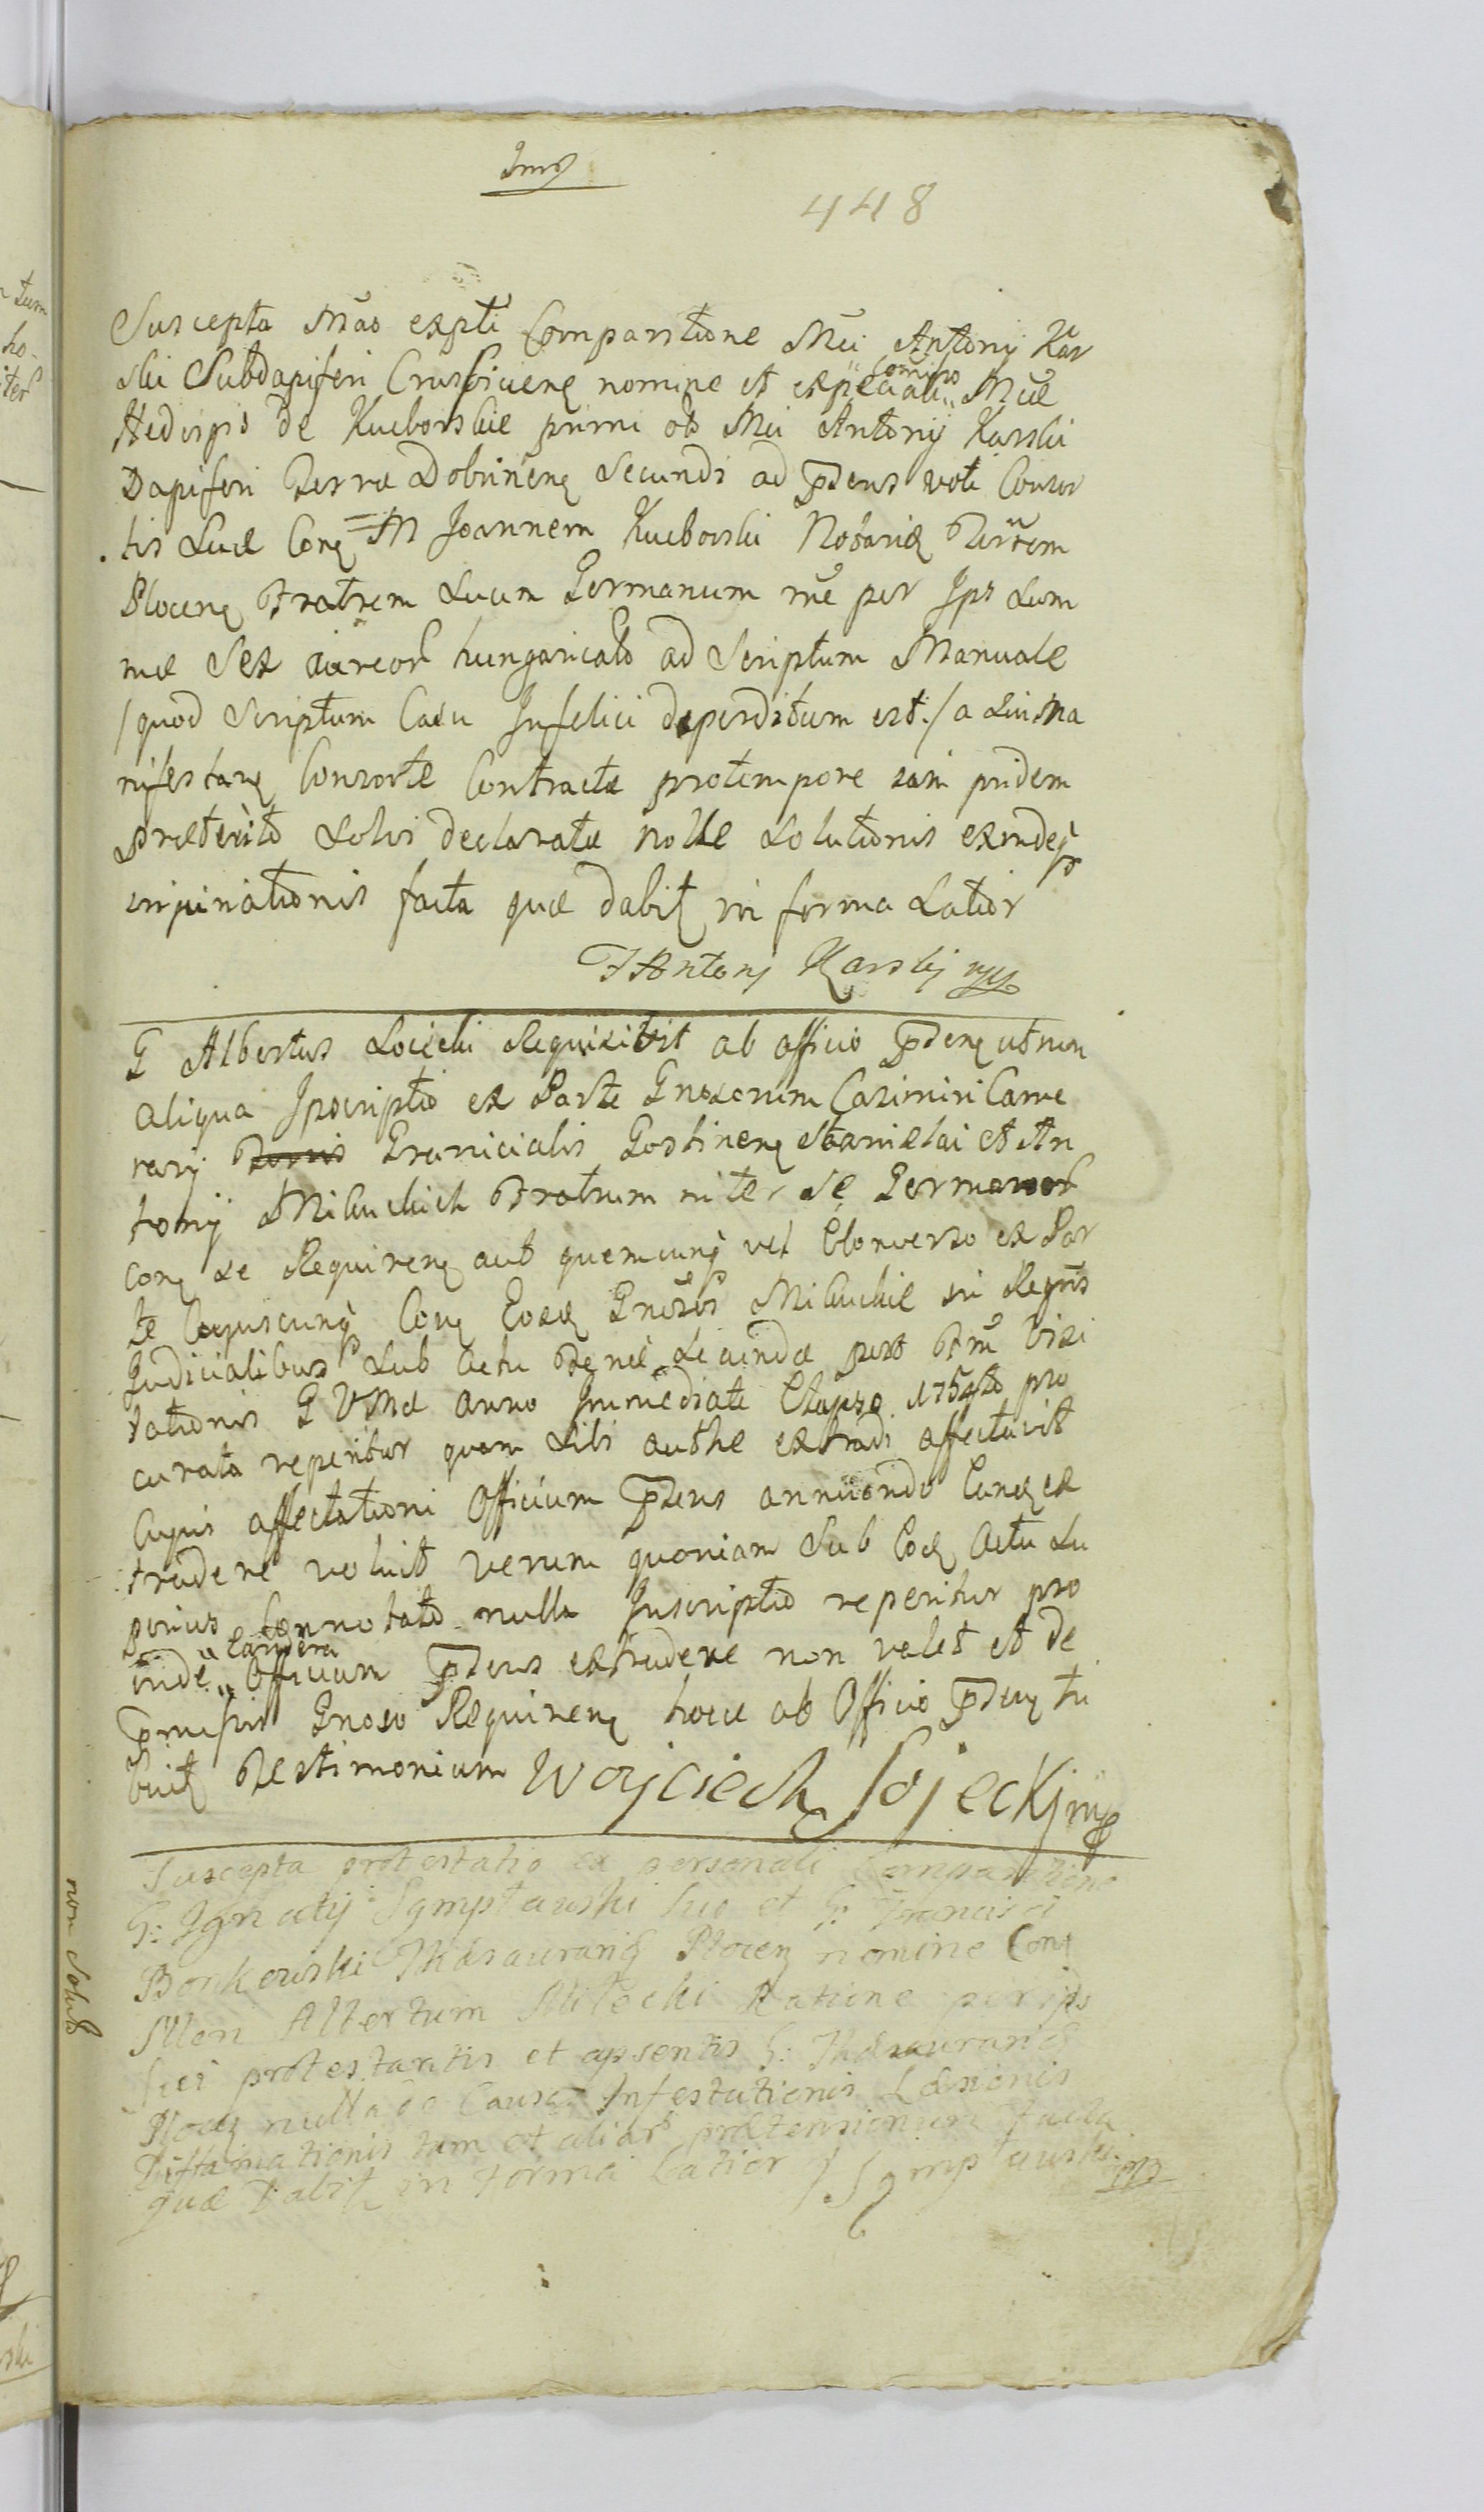 448
Suscepta Mão expti Comparitione Mci Antonij Kar
ski Subdapiferi Crusviciens nomine et ex speciali comisso Mcæ
Hedvigis de Kucborskie primi ab Mci Antonij Karski
Dapiferi Terræ Dobrinens Secundi ad pñs voti Consor
tis suæ Conq M Joannem Kucborski Notariũ Terrem
Plocens Fratrem suum Germanum rñe per Ips sum
mæ Sex aureor hungarical ad Scriptum Manuale
/quod Scriptum Casu Infelici deperditum est./ a sui Ma
nifestanq Consorte Contractæ protempore iam pridem
præterito solvi declaratæ nolle solutionis exindeq
iniuriationis facta quæ dabitq in forma Latior
Antonj Karskj mp
G Albertus Sojecki Requisivit ab officio pñdenq utrum
aliqua Inscriptio ex Parte Gnosorum Casimiri Came
rarij Granicialis Gostinenq Stanislai et An
tonij Miluckich Fratrum inter se Germanor
conq se Requirenq aut quemcunq vel Econverso ex Par
te Cujuscunq Conq Eosd Gnosos Miluckie in Regtris
Judicialibus sub actu
tationis G V Mæ anno Immediate Elapso 1754to pro
curata reperitur quam sibi authe extradi affectavit
Cujus affectationi Officium pñdens annuendo Eandq ex
tradere voluit verum quoniam sub Eodq Actu su
perius connotato nulla Inscriptio reperitur pro
inde eandem Officium pñdens extradere non valet et de
præmissis Gnoso Requirenq hocce ab Officio pñdenq tri
buitq Testimonium Wojciech Sojeckj mp
Suscepta protestatio ex personali Comparitione
G: Ignatij Sgmptawski suo et G: Francisci
Bonkowski Thesaurarij Plocen nomine Conq
Mlen Albertum Milecki Ratione per ips
sui protestantis et apsentis G: Thesaurarij
Plocen nulla de Causa Infestationis Læsionis
Diffamationis tum et aliar prætensionum facta
quæ Dabitq in Forma Latior J Sgmptawski mp
non solut